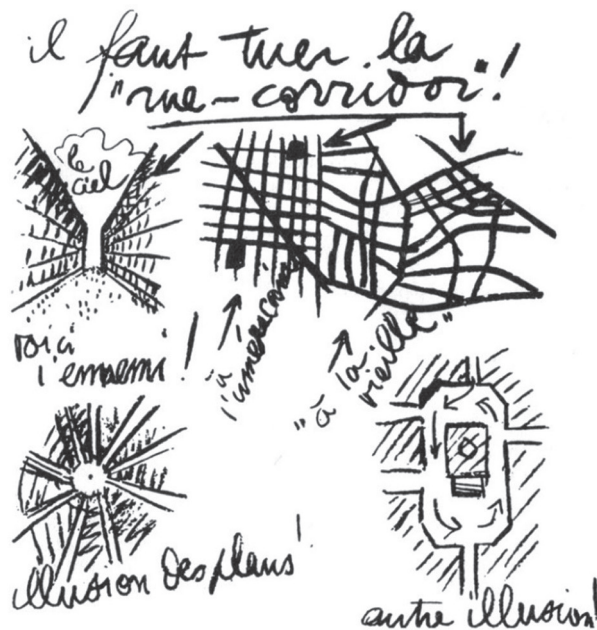 il faut tuer la
"rue-corridor"!
le
ciel
voici
l'ennemi!
à
l'américaine
"à la
vieille"
illusion des plans!
autre illusion!